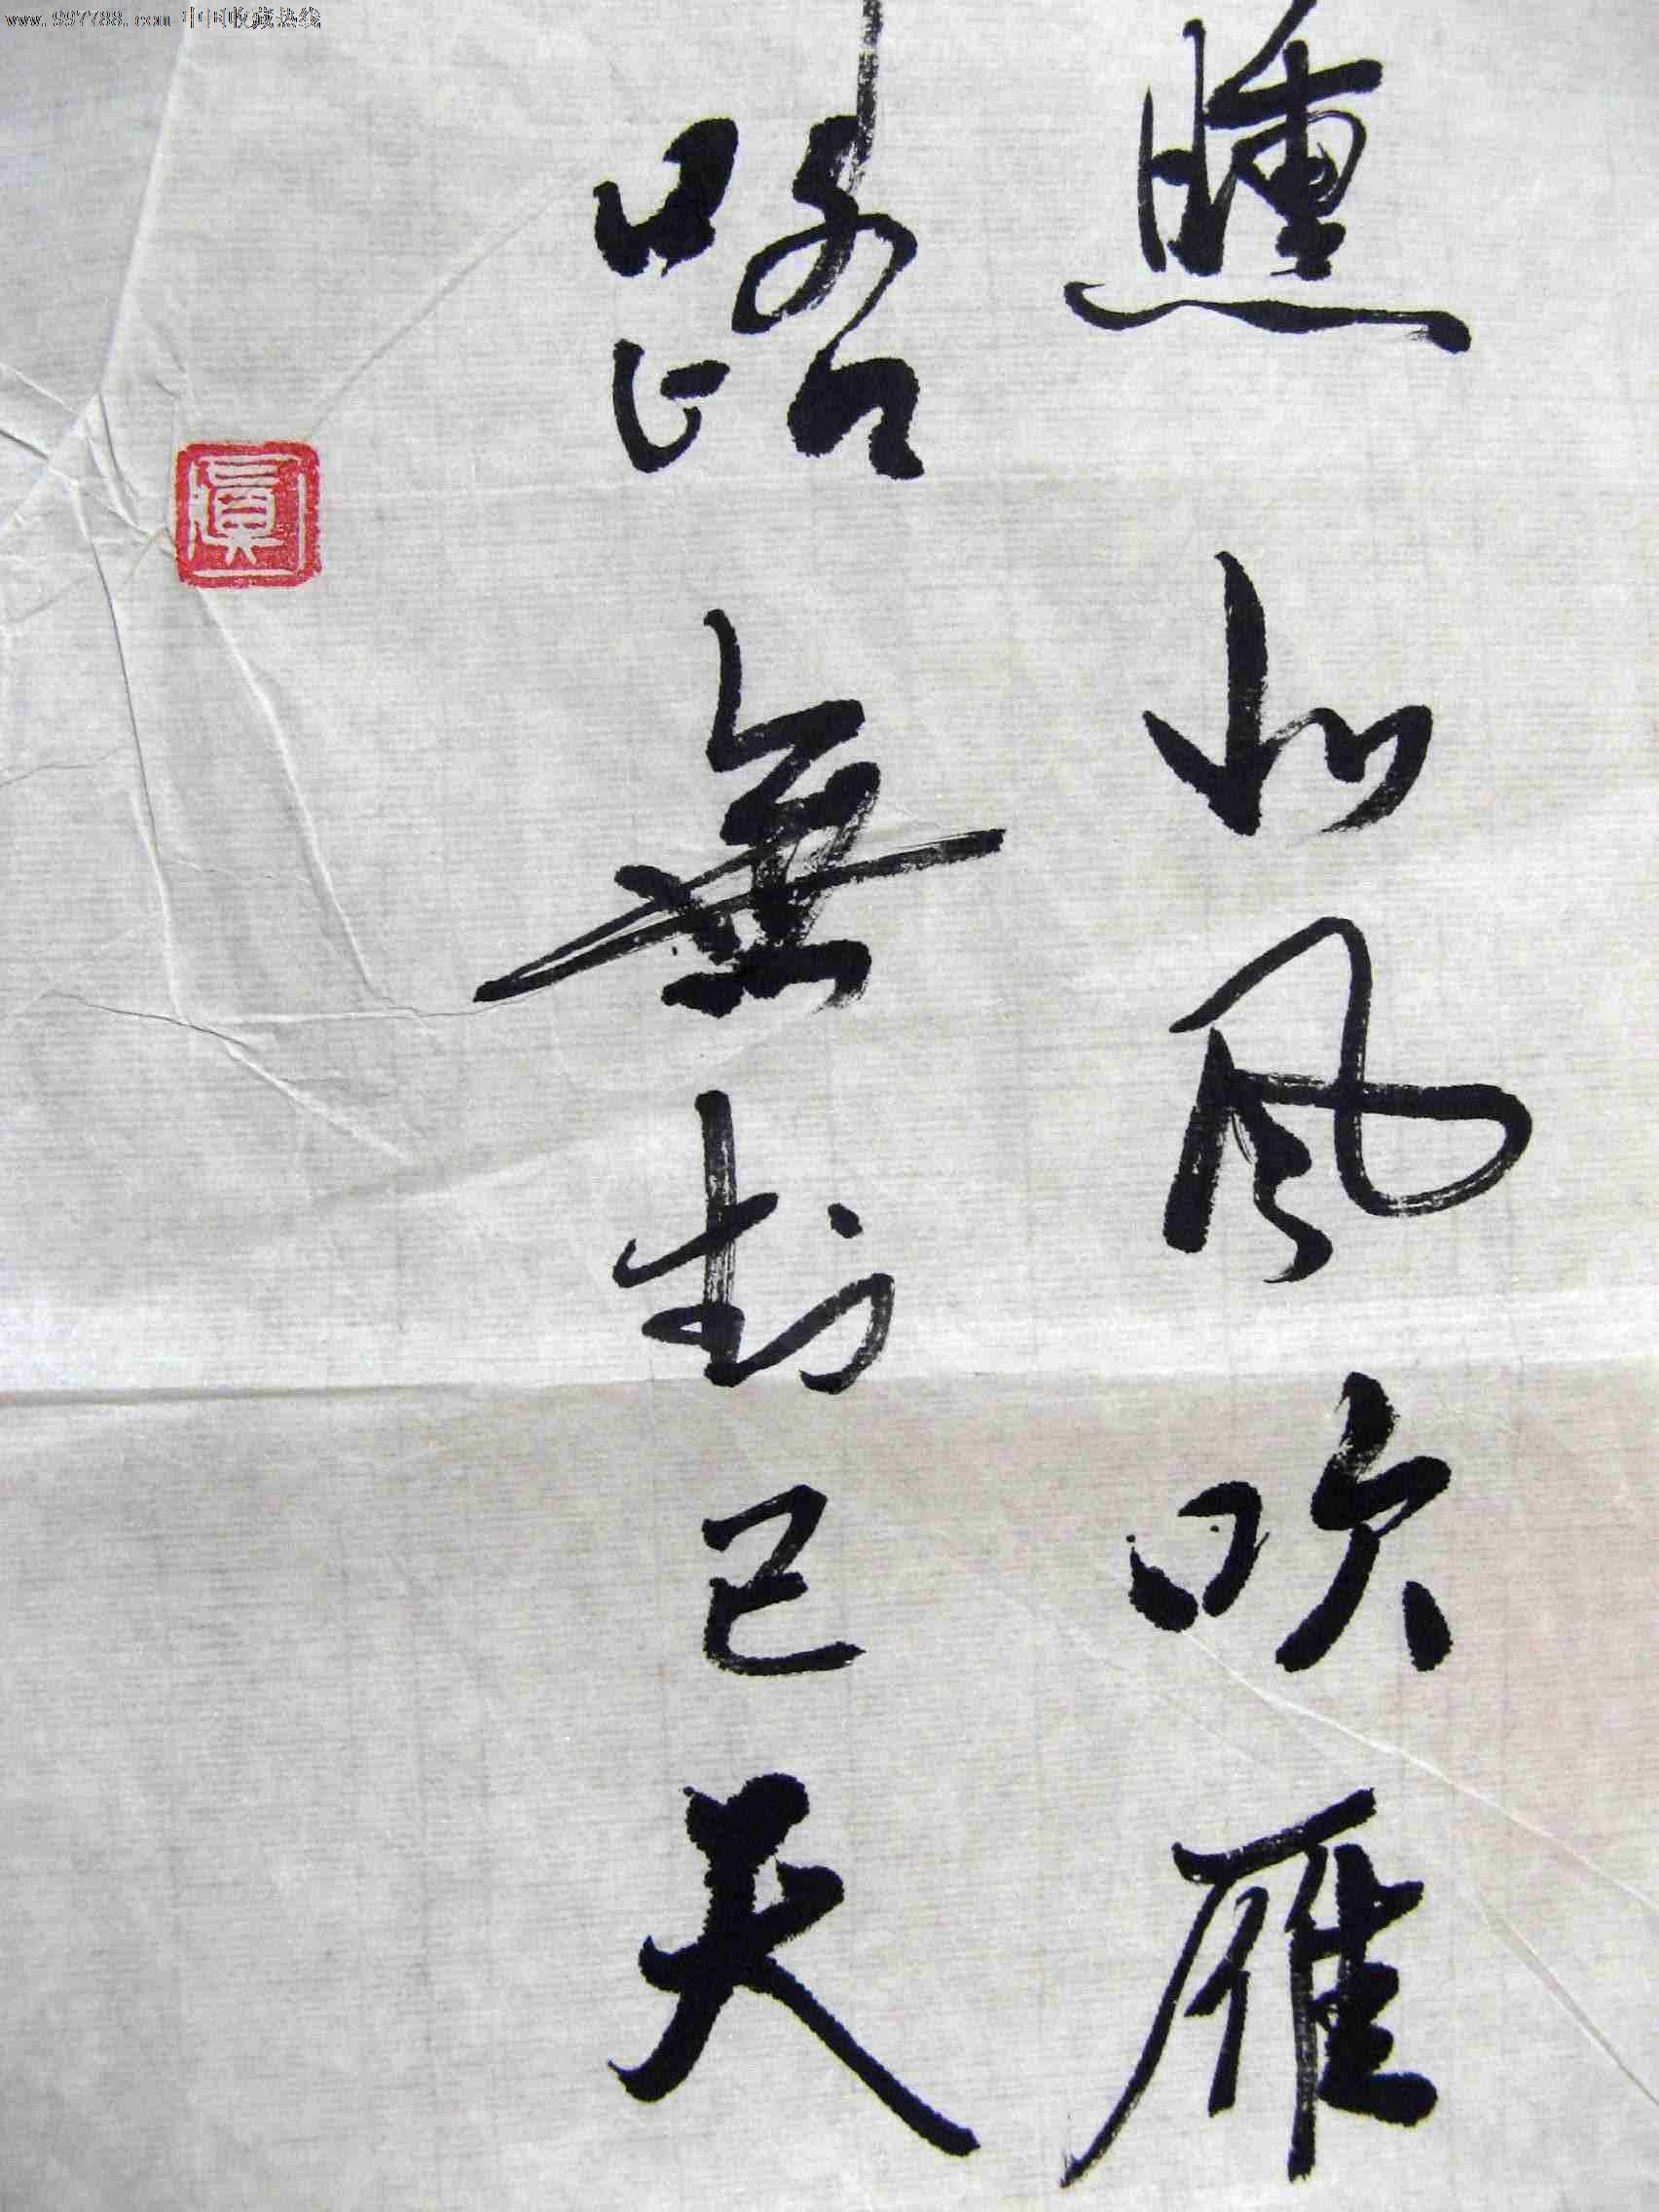 www.997788.com 中国收藏热线
曛北风吹雁
路無知己天